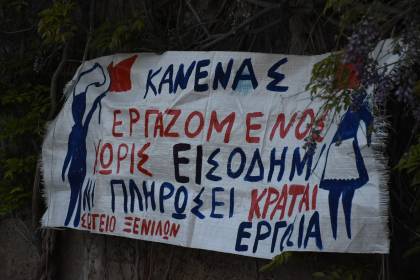 ΚΑΝΕΝΑΣ
ΕΡΓΑΖΟΜΕΝΟΣ
ΧΩΡΙΣ ΕΙΣΟΔΗΜ
ΝΑ ΠΛΗΡΩΣΕΙ ΚΡΑΤΑΙ
ΕΡΓΑΣΙΑ
ΣΩΤΕΙΟ ΞΕΝΙΛΩΝ